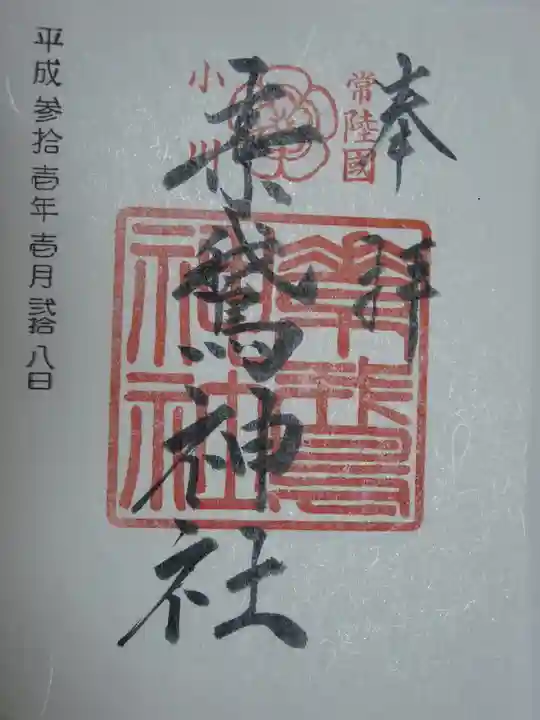 奉拝
常陸國
小川
素鵞神社
素鵞神社
平成参拾壱年壱月弐拾八日